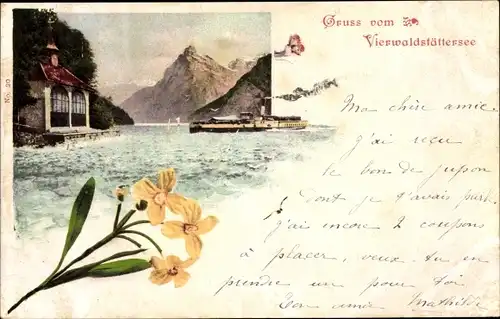 Gruss vom
Vierwaldstättersee
No. 20
Ma chère amie
j'ai reçu
le bon de jupon
Dont je t'avais parlé
j'ai encore 2 coupons
à placer, veux-tu en
prendre un pour toi
Ton amie Mathilde